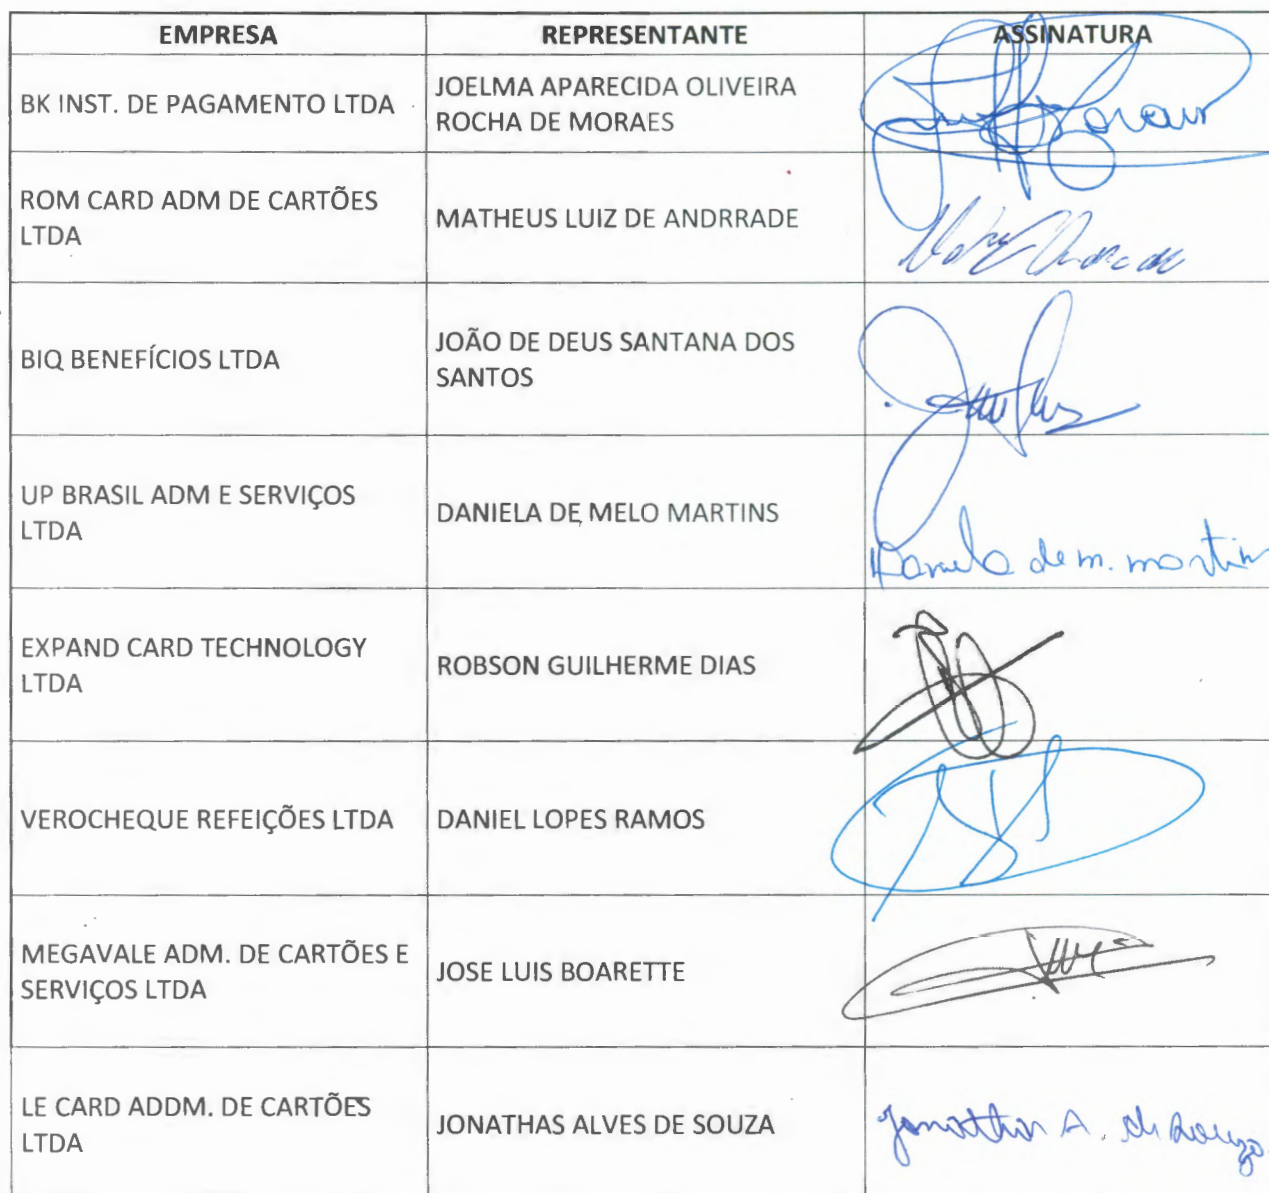 EMPRESA REPRESENTANTE ASSINATURA
BK INST. DE PAGAMENTO LTDA
JOELMA APARECIDA OLIVEIRA
ROCHA DE MORAES
ROM CARD ADM DE CARTÕES
LTDA
MATHEUS LUIZ DE ANDRRADE
BIQ BENEFÍCIOS LTDA
JOÃO DE DEUS SANTANA DOS
SANTOS
UP BRASIL ADM E SERVIÇOS
LTDA
DANIELA DE MELO MARTINS
Daniela de m. martin
EXPAND CARD TECHNOLOGY
LTDA
ROBSON GUILHERME DIAS
VEROCHEQUE REFEIÇÕES LTDA
DANIEL LOPES RAMOS
MEGAVALE ADM. DE CARTÕES E
SERVIÇOS LTDA
JOSE LUIS BOARETTE
LE CARD ADDM. DE CARTÕES
LTDA
JONATHAS ALVES DE SOUZA
Jonathas A. de Souza